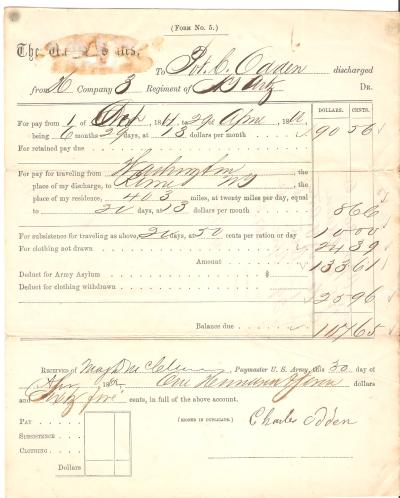 (FORM No. 5.)
The
To Pvt. C. Odden discharged
from Company 3 Regiment of DR.
DOLLARS. CENTS.
For pay from 1 of 29
being 6 months 29 days, at 13 dollars per month 90 56
For retained pay due
For pay for traveling from Washington, the
place of my discharge, to NY, the
place of my residence, 403 miles, at twenty miles per day, equal
to 20 days, at 13 dollars per month 8 66
For subsistence for traveling as above, 20 days, at 50 cents per ration or day 10 00
For clothing not drawn 24 39
Amount 133 61
Deduct for Army Asylum $
Deduct for clothing withdrawn
25 96
Balance due 107 65
RECEIVED of Paymaster U. S. Army, this 30 day of
186 One Hundred & Seven dollars
and Sixty five cents, in full of the above account.
PAY
(SIGNED IN DUPLICATE.)
Charles Odden
SUBSISTENCE
CLOTHING
Dollars